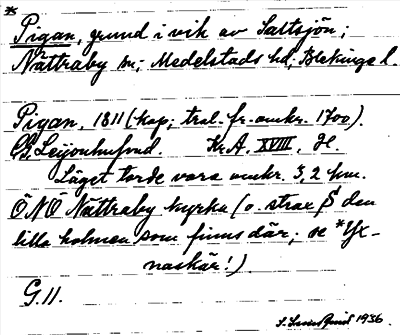 *
Pigan, grund i vik av Saltsjön;
Nättraby sn; Medelstads hd; Blekinge l.
Pigan, 1811 (kop; trol. fr. omkr. 1700).
C.G. Leijonhufvud. Kr.A, XVIII, H.
Läget torde vara omkr. 3,2 km.
ÖNÖ Nättraby kyrka (o. strax S den
lilla holmen som finns där; se *Yx-
naskär!).
G.11.
1936